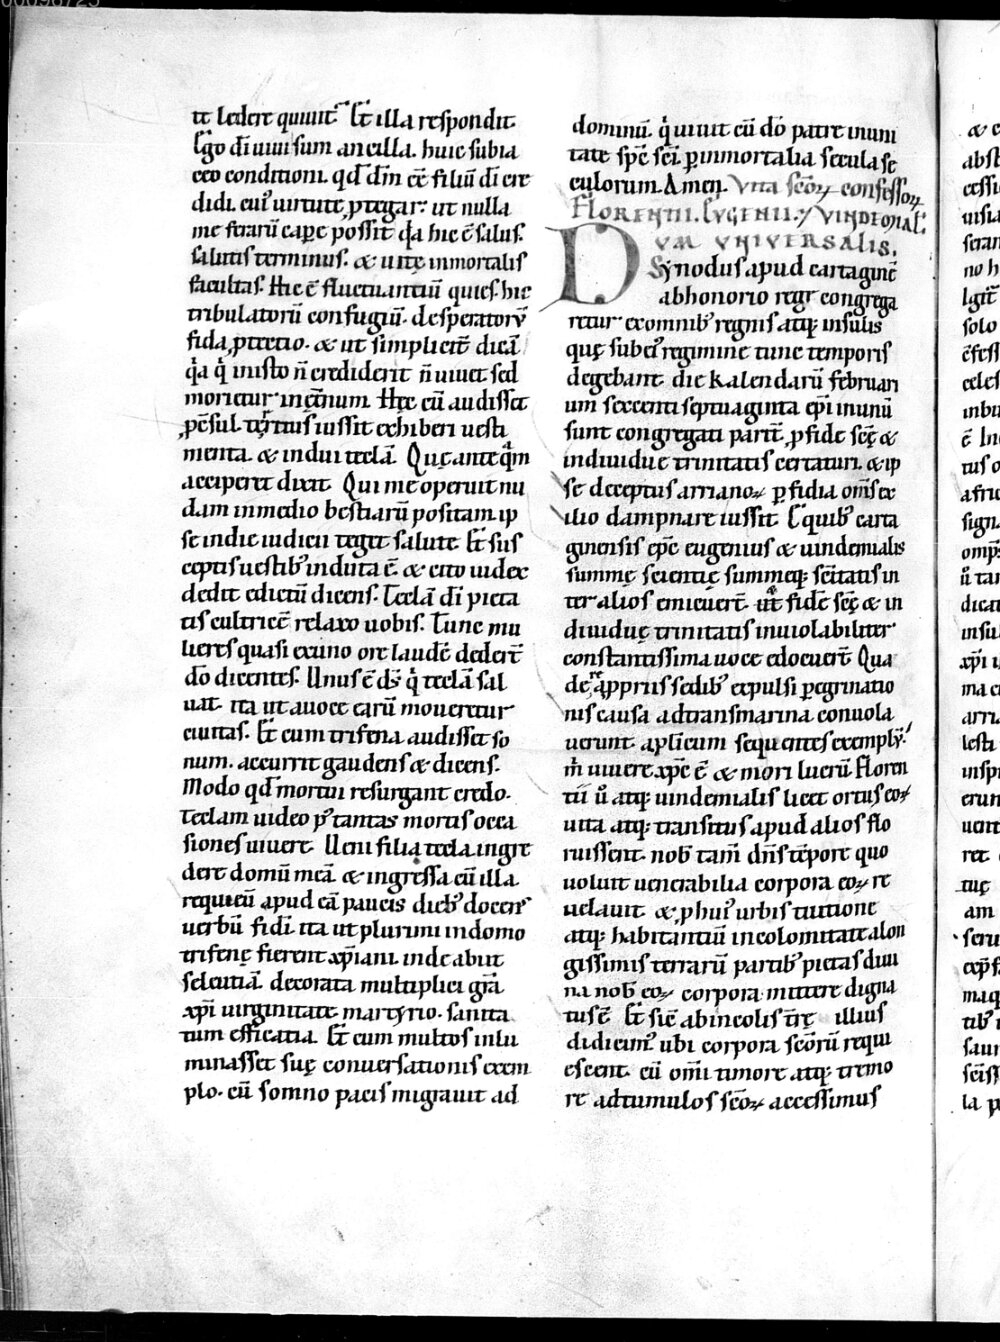 te ledere quiuit Et illa respondit
Ego dī uiui sum ancilla. huic subia
ceo conditioni. qđ dīm eē filiū dī cre
didi. cuiꝰ uirtute ꝓtegar: ut nulla
me ferarū capere possit q̇a hic ē salus.
salutis terminus. & uitę inmortalis
facultas. Hic ē fluctuantiū quies. hic
tribulatorū confugiū. desperatorū
fida ꝓtectio. & ut simpliciť dicā
q̇a q̇ in isto n̄ crediderit n̄ uiuet sed
morietur in ęt̄num. Hęc cū audisset
p̄sul tertius iussit exhiberi uesti
menta. & indui teclā. Quę anteq̄m
acciperet dixit. Qui me operuit nu
dam in medio bestiarū positam ip
se in die iudicii teget salute. Et sus
ceptis uestibꝰ induta ē. & cito iudex
dedit edictū dicens. Teclā dī pieta
tis cultricē relaxo uobis. Tunc mu
lieres quasi ex uno ore laudē dedert̄
dō dicentes. Unus ē dꝰ q̇ teclā sal
uat. ita ut a uoce earū moueretur
ciuitas. Et cum trifena audisset so
num. accurrit gaudens & dicens.
Modo qđ mortui resurgant credo.
Teclam uideo p̄ tantas mortis occa
siones uiuere. Ueni filia tecla ingre
dere domū meā. & ingressa cū illa.
requieuī apud eā paucis diebꝰ docens
uerbū fidi. ita ut plurimi in domo
trifenę fierent xp̄iani. inde abiit
seleutiā. decorata multiplici gr̄a
xp̄i uirginitate. martyrio. sanita
tum efficatia. Et cum multos inlu
minasset suę conuersationis exem
plo. cū somno pacis migrauit ad
dominū. q̇ uiuit cū dō patre in uni
tate sp̄c sc̄i ꝑ inmortalia secula se
culorum. Amen. Vita sc̄oꝝ confessoꝝ
FLORENTII. EVGENII. & VINDEMIAL'
DVM VNIVERSALIS.
Synodus apud cartaginē
ab honorio rege congrega
retur ex omnibꝰ regnis atq; insulis
quę sub eiꝰ regimine tunc temporis
degebant. die kalendarū februari
um sexcenti septuaginta ep̄i in unū
sunt congregati parit̄. ꝓ fide scę̄ &
indiuiduę trinitatis certaturi. & ip
se deceptus arrianoꝝ ꝑfidia om̄s ex
ilio dampnare iussit. E quibꝰ carta
ginensis ep̄c eugenius & uindemialis
summę scientię summeq; sc̄itatis in
ter alios emicuert̄. ut fidē scę̄ & in
diuiduę trinitatis inuiolabiliter
constantissima uoce edocuert̄. Qua
de re a ꝓpriis sedibꝰ expulsi ꝑegrinatio
nis causa ad transmarina conuola
uerunt. ap̄licum sequentes exemplū.
m̄ uiuere xp̄c ē & mori lucrū. Floren
tii ū atq; uindemialis licet ortus eoꝝ
uita atq; transitus apud alios flo
ruissent. nob̄ tam̄ dn̄s tēpore quo
uoluit uenerabilia corpora eoꝝ re
uelauit. & ꝓ huiꝰ urbis tuitione
atq; habitantiū incolomitate a lon
gissimis terrarū partibꝰ pietas diui
na nob̄ eoꝝ corpora mittere digna
tus ē. Et sic̄ ab incolis tr̄ę illius
didicimꝰ. ubi corpora sc̄orū requi
escent. cū omī timore atq; tremo
re ad tumulos sc̄oꝝ accessimus